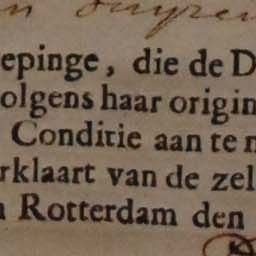 epinge, die de D
olgens haar origin
Conditie aan te n
rklaart van de zel
n Rotterdam den